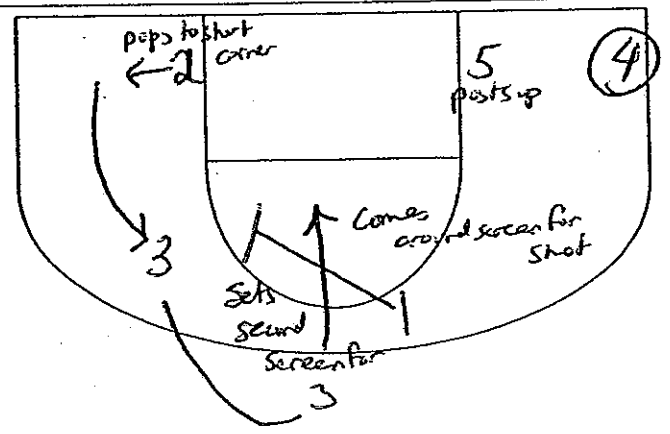 pops to short
corner
2
5
posts up
4
3
comes
around screen for
shot
sets
second
screen for
3
1